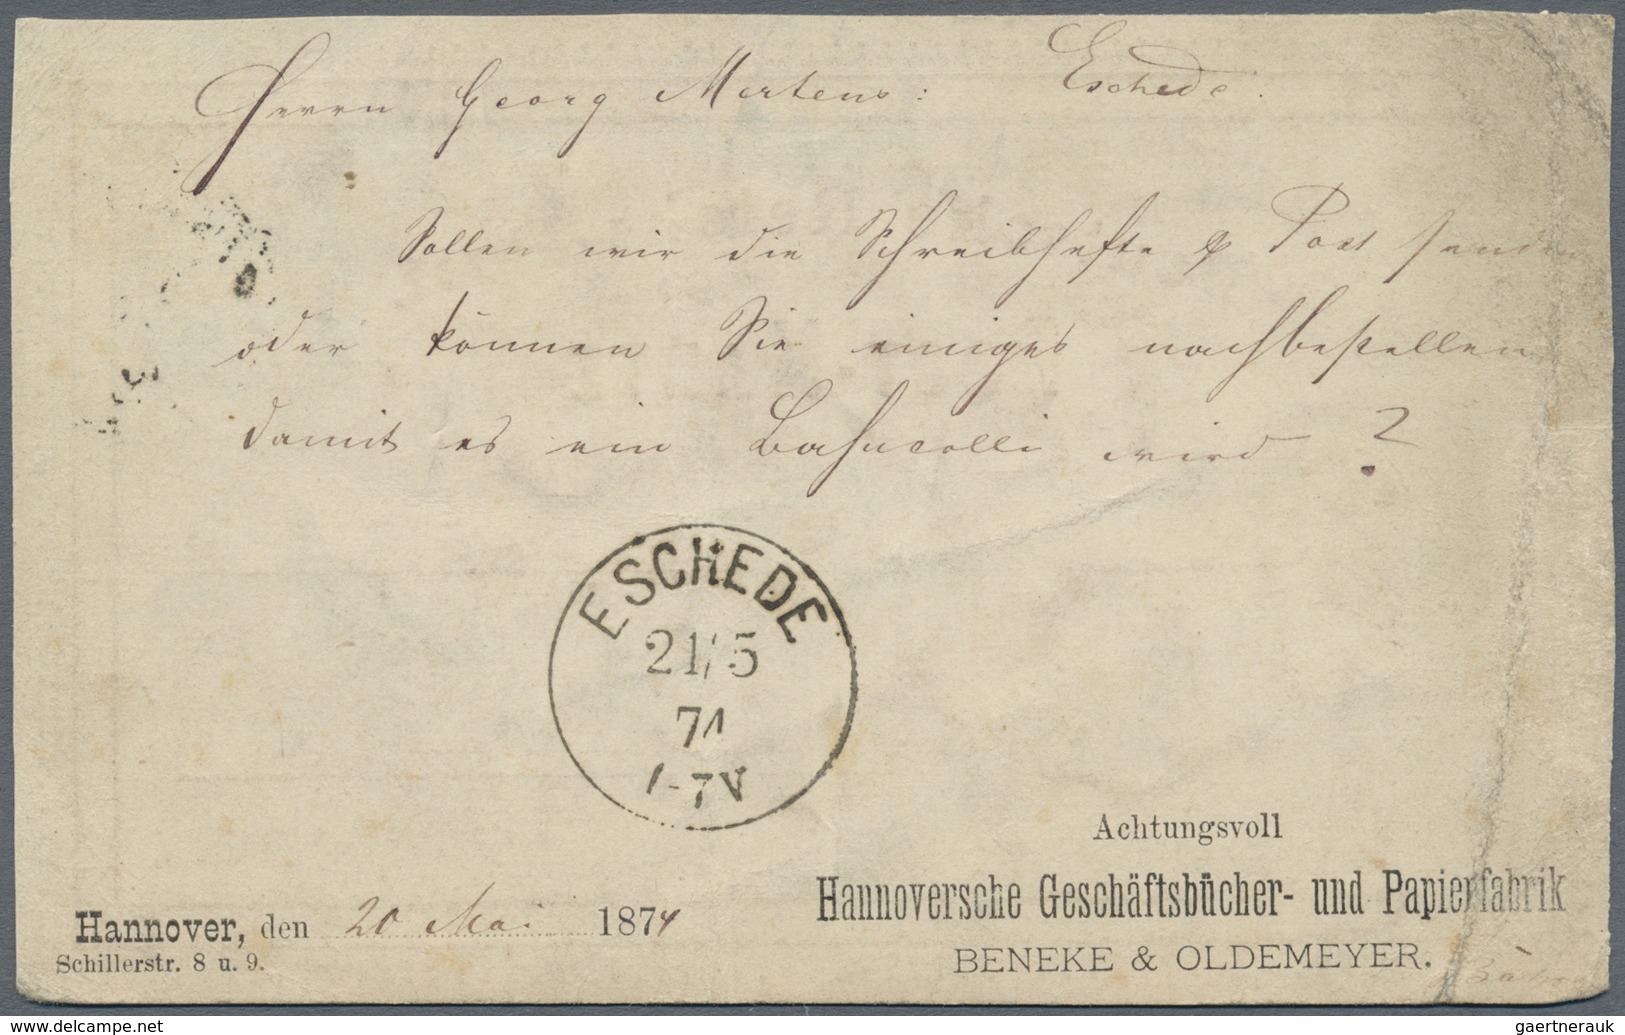 Herrn Georg Mertens: Eschede.
Sollen wir die Schreibhefte p Post senden
oder können Sie einiges nachbestellen
damit es ein Bahncolli wird?
ESCHEDE
21/5
74
-7V
Achtungsvoll
Hannoversche Geschäftsbücher- und Papierfabrik
BENEKE & OLDEMEYER.
Hannover, den 20 Mai 1874
Schillerstr. 8 u. 9.
www.delcampe.net
gaertnerauk